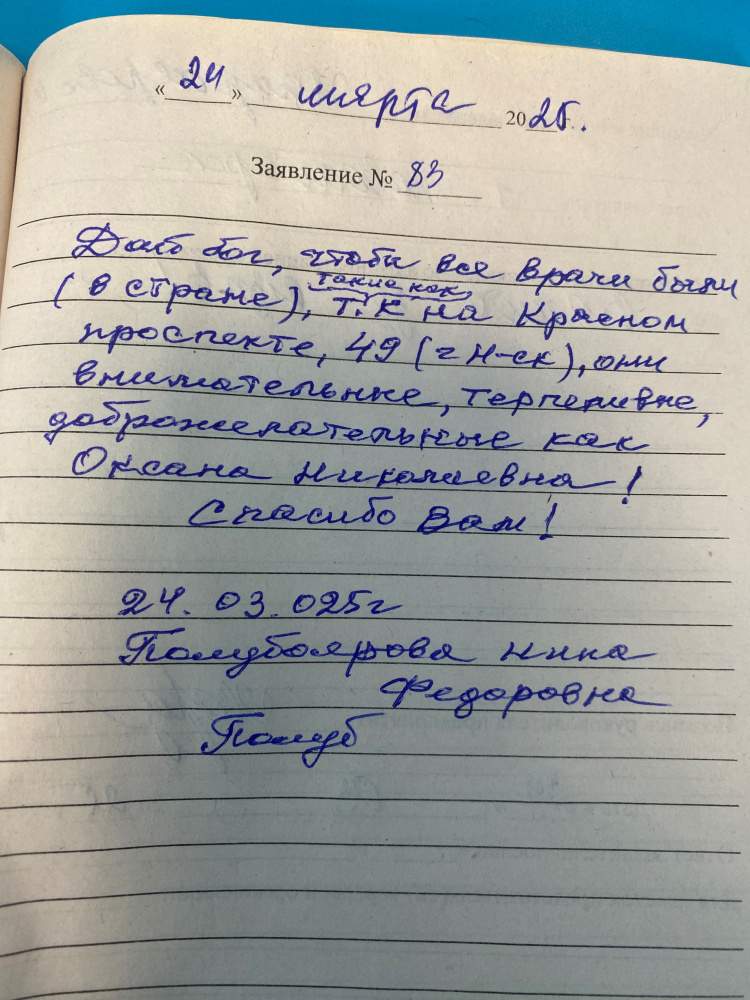 « 24 » марта 2025.
Заявление № 83
Дай бог, чтобы все врачи были
такие как
(в стране), т.к на Красном
проспекте, 49 (г Н-ск), они
внимательные, терпеливые,
доброжелательные как
Оксана Николаевна!
Спасибо Вам!
24. 03. 025г
Полубоярова Нина
Федоровна
Полуб